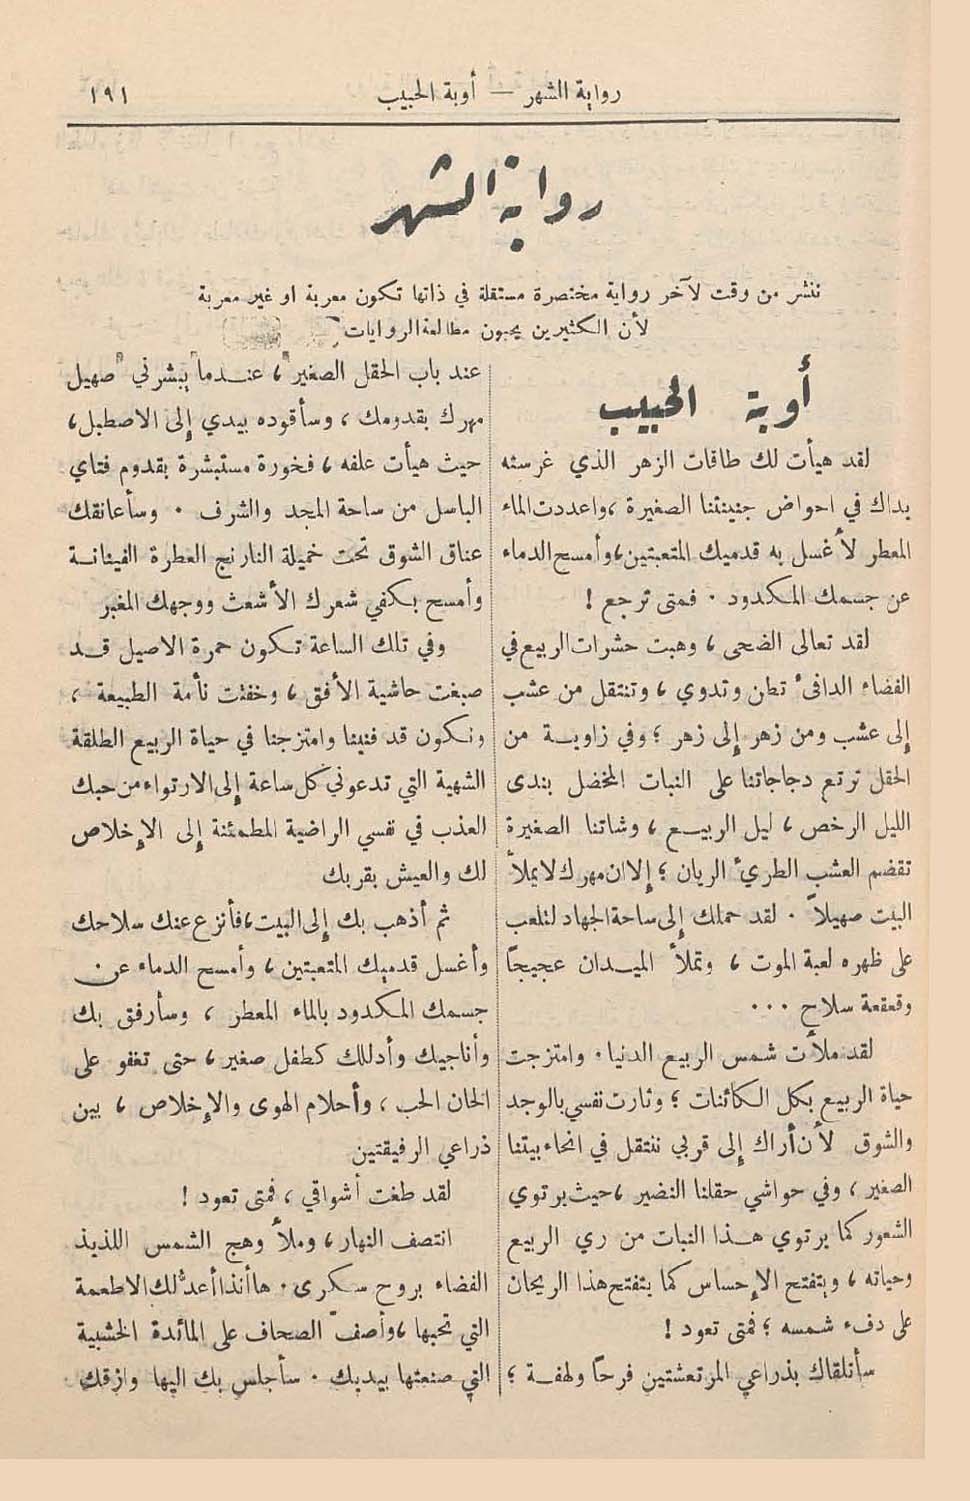 رواية الشهر — أوبة الحبيب
١٩١
رواية الشهر
ننشر من وقت لآخر رواية مختصرة مستقلة في ذاتها تكون معربة او غير معربة
لأن الكثيرين يحبون مطالعة الروايات
أوبة الحبيب
لقد هيأت لك طاقات الزهر الذي غرسته
يداك في احواض جنينتنا الصغيرة ، واعددت الماء
المعطر لأغسل به قدميك المتعبتين، وأمسح الدماء
عن جسمك المكدود . فمتى ترجع !
لقد تعالى الضحى ، وهبت حشرات الربيع في
الفضاء الدافىء تطن وتدوي ، وتنتقل من عشب
إلى عشب ومن زهر إلى زهر ؛ وفي زاويـة من
الحقل ترتع دجاجاتنا على النبات المخضل بندى
الليل الرخص ، ليل الربيـع ، وشاتنا الصغيرة
تقضم العشب الطريء الريان ؛ إلا ان مهرك لا يملأ
البيت صهيلاً . لقد حملك إلى ساحة الجهاد لتلعب
على ظهره لعبة الموت ، وتملأ الميـدان عجيجاً
وقعقعة سلاح ...
لقد ملأت شمس الربيع الدنيا . وامتزجت
حياة الربيع بكل الكائنات ؛ وثارت نفسي بالوجد
والشوق لأن أراك إلى قربي ننتقل في انحاء بيتنا
الصغير ، وفي حواشي حقلنا النضير ، حيث يرتوي
الشعور كما يرتوي هـذا النبات من ري الربيع
وحياته ، ويتفتح الإحساس كما يتفتح هذا الريحان
على دفء شمسه ؛ فمتى تعود !
سأتلقاك بذراعي المرتعشتين فرحاً ولهفـة ؛
عند باب الحقل الصغير ، عنـدما يبشرني صهيل
مهرك بقدومك ، وسأقوده بيدي إلى الاصطبل ،
حيث هيأت علفه ، فخورة مستبشرة بقدوم فتاي
الباسل من ساحة المجد والشرف . وسأعانقك
عناق الشوق تحت خميلة النارنج العطرة الفينانـة
وأمسح بكفي شعرك الأشعث ووجهك المغبر
وفي تلك الساعة تكون حمرة الاصيل قـد
صبغت حاشية الأفق ، وخفتت نأمة الطبيعة ،
ونكون قد فنينا وامتزجنا في حياة الربيع الطلقة
الشهية التي تدعوني كل ساعة إلى الارتواء من حبك
العذب في نفسي الراضية المطمئنة إلى الإخلاص
لك والعيش بقربك
ثم أذهب بك إلى البيت ، فأنزع عنك سلاحك
وأغسل قدميك المتعبتين ، وأمسح الدماء عن
جسمك المكدود بالماء المعطر ، وسأرفق بك
وأناجيك وأدللك كطفل صغير ، حتى تغفو على
الحان الحب ، وأحلام الهوى والإخلاص ، بين
ذراعي الرفيقتين
لقد طغت أشواقي ، فمتى تعود !
انتصف النهار ، وملأ وهج الشمس اللذيذ
الفضاء بروح سكرى . ها أنذا أعد لك الاطعمة
التي تحبها ، وأصفّ الصحاف على المائدة الخشبية
التي صنعتها بيدك . سأجلس بك اليها وازقك